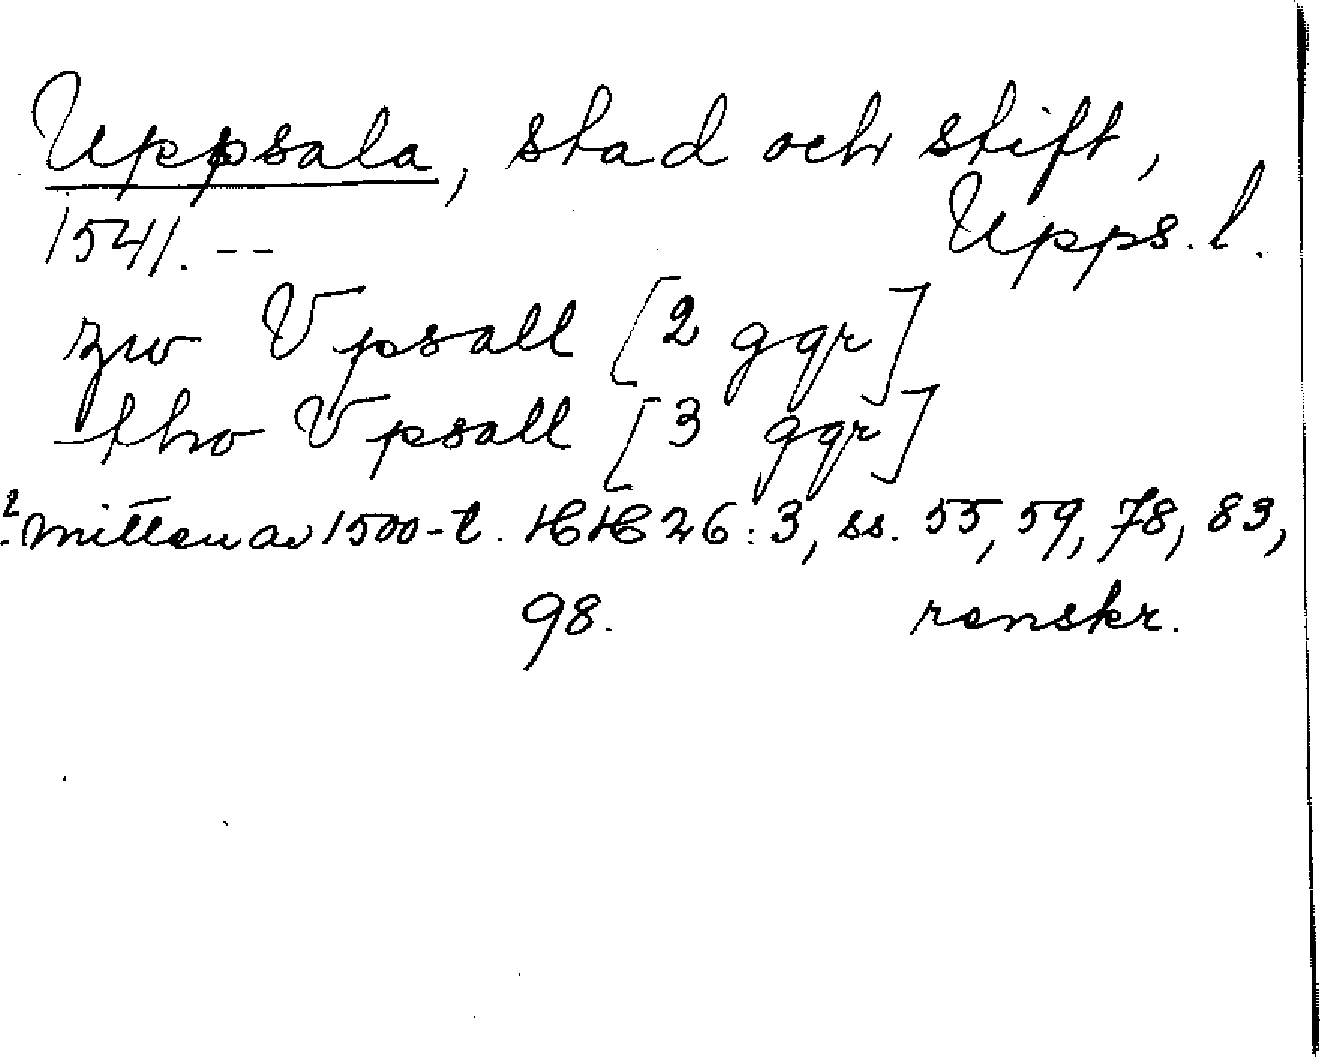 Uppsala, stad och stift,
1541. -- Upps. l.
zw Vpsall [2 ggr]
tho Vpsall [3 ggr]
2. mitten av 1500-t. HH 26:3, ss. 55, 59, 78, 83,
98. renskr.